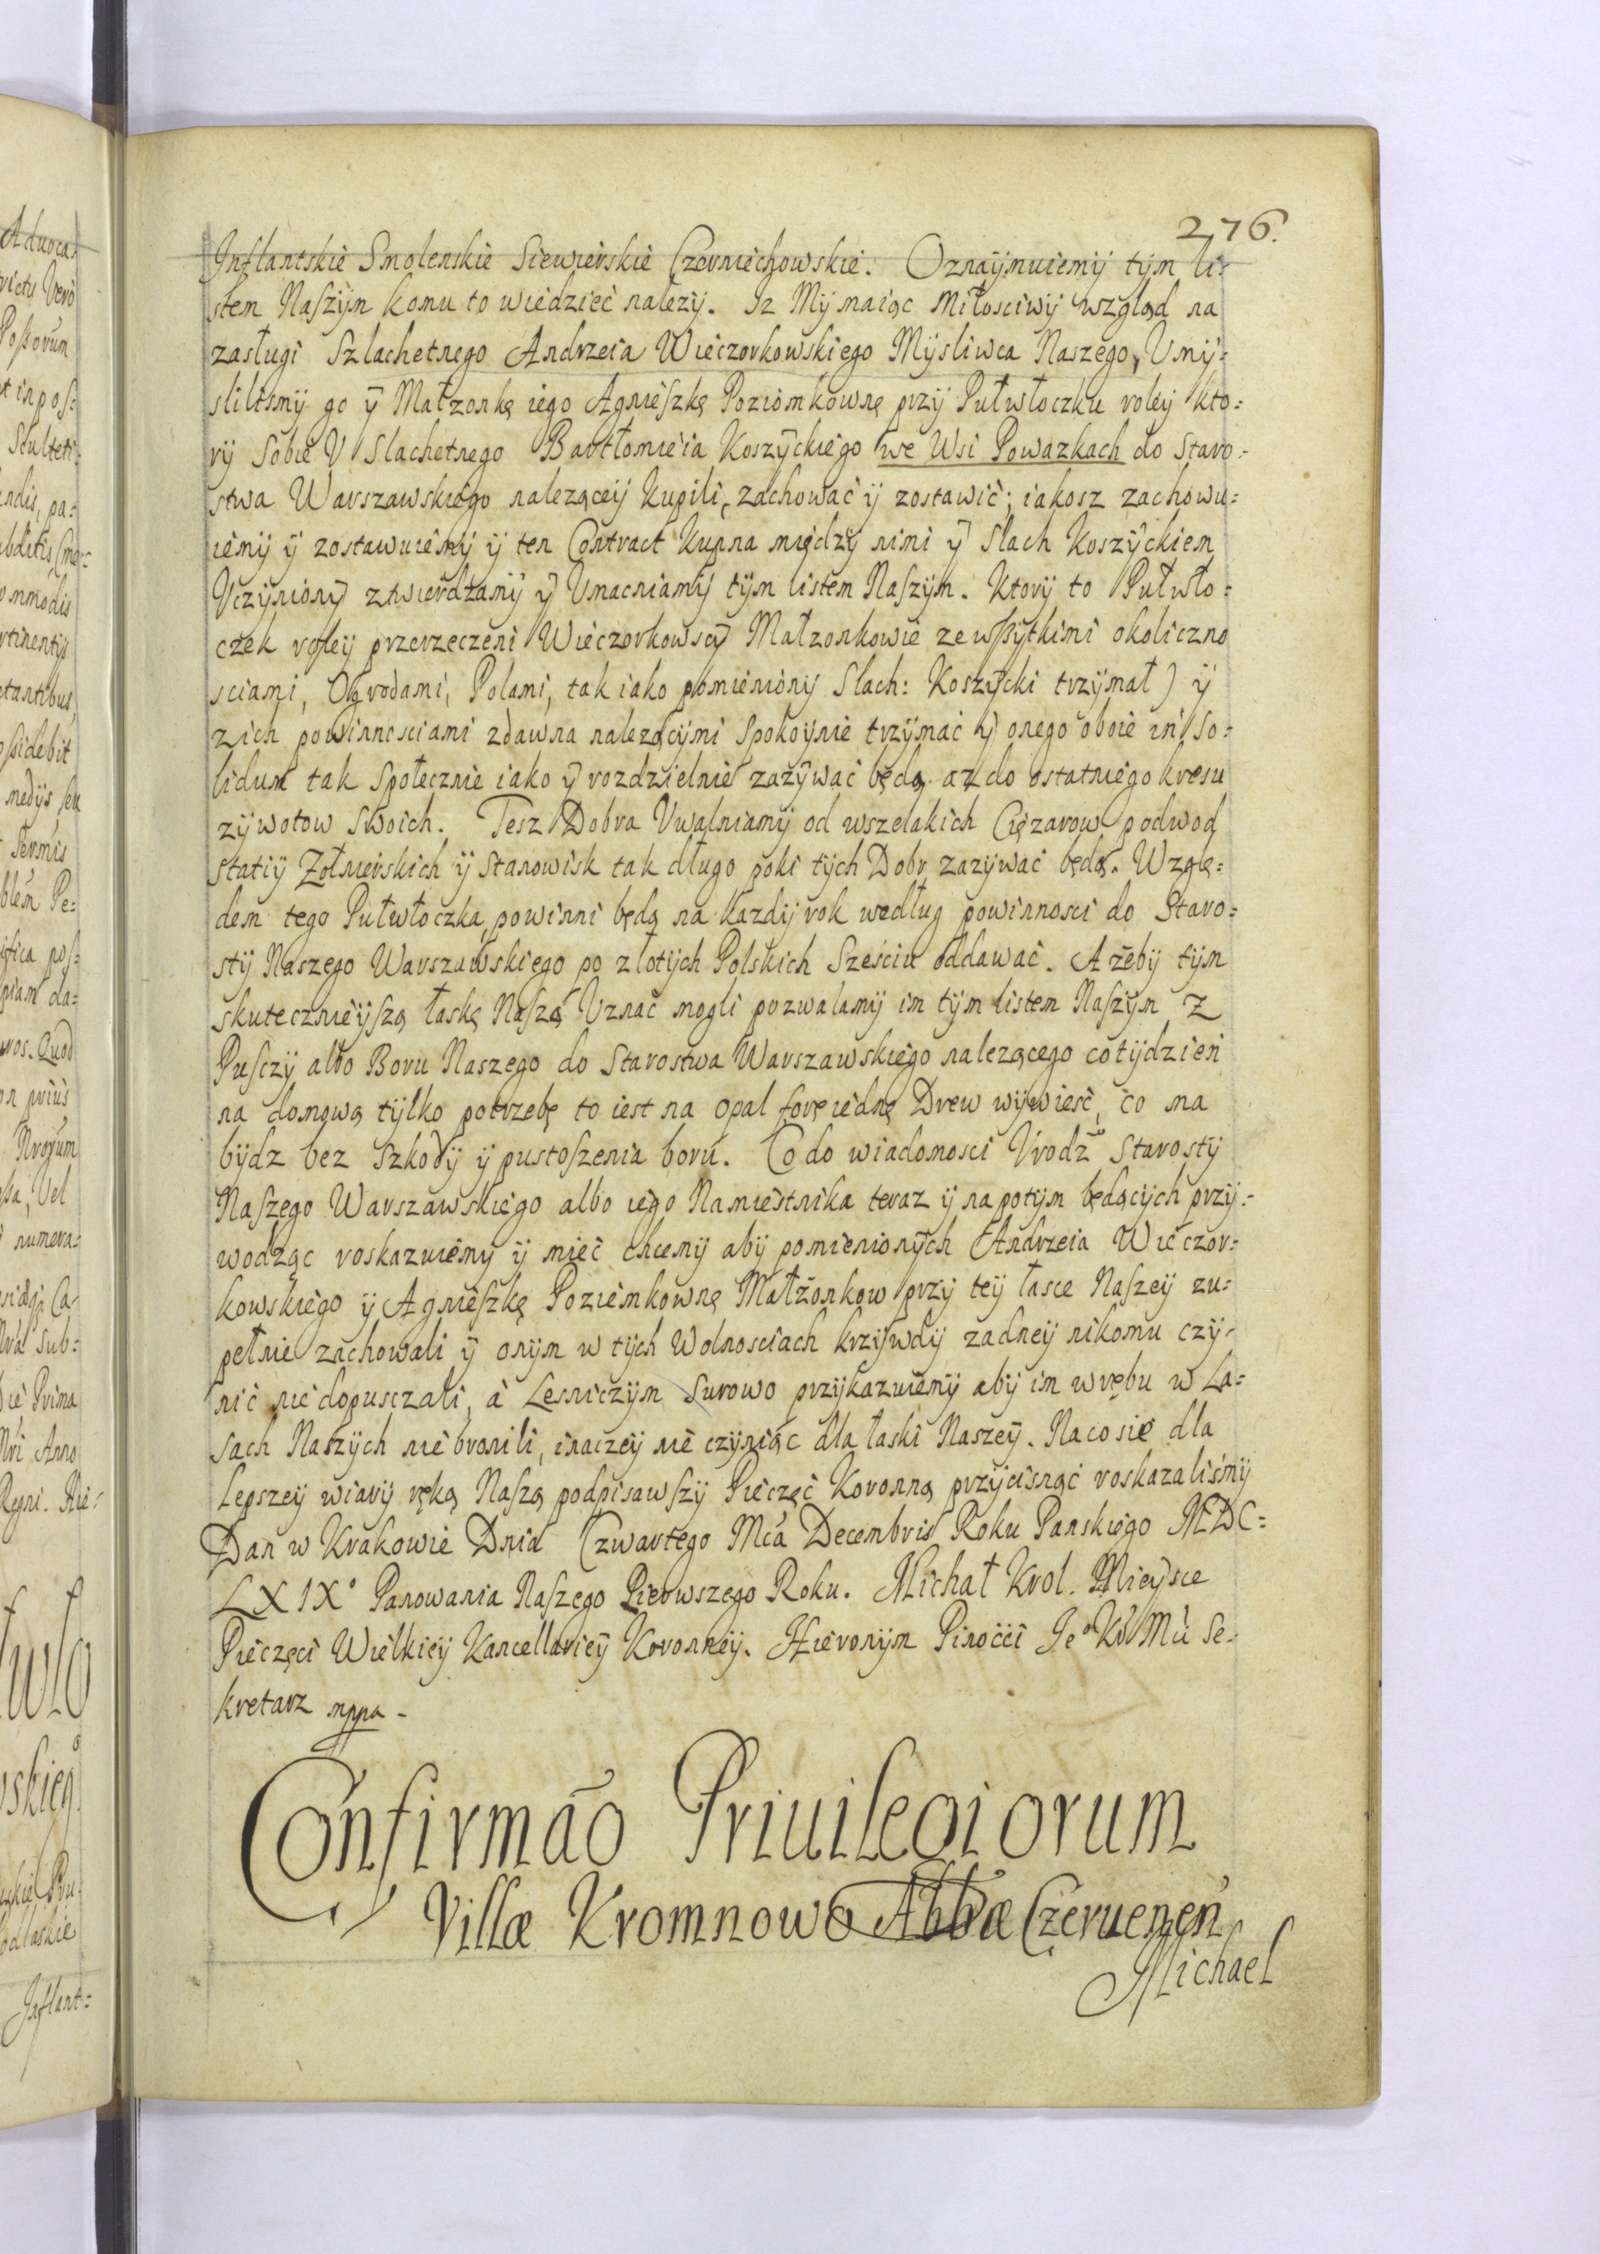 276.
Inflantskie Smolenskie Siewierskie Czerniechowskie. Oznaÿmuiemÿ tÿm li-
stem Naszÿm komu to wiedziec nalezÿ. Iz Mÿ maiąc Miłosciwÿ wzgląd na
zasługi Szlachetnego Andrzeia Wieczorkowskiego Mÿsliwca Naszego, Vmÿ-
slilismÿ go ÿ Małzonkę iego Agnieszkę Poziomkownę przÿ Pułwłoczku roleÿ kto-
rÿ sobie V Slachetnego Bartłomieia Koszÿckiego we Wsi Powazkach do Staro-
stwa Warszawskiego naleząceÿ kupili, zachowac ÿ zostawic; iakosz zachowu-
iemÿ ÿ zostawuiemÿ ÿ ten Contract kupna między nimi ÿ Slach Koszÿckiem
Vczÿnionÿ ztwierdzamÿ ÿ Vmacniamÿ tÿm listem Naszÿm. Ktorÿ to Pułwło-
czek roleÿ przerzeczeni Wieczorkowscÿ Małzonkowie ze wszÿtkimi okoliczno
sciami, Ogrodami, Polami, tak iako pomienionÿ Slach: Koszÿcki trzÿmał) ÿ
z ich powinnosciami zdawna nalezącÿmi spokoÿnie trzÿmać ÿ onego oboie in so-
lidum tak społecznie iako ÿ rozdzielnie zazÿwać będą az do ostatniego kresu
zÿwotow swoich. Tesz Dobra Vwalniamÿ od wszelakich Cięzarow podwod
statiÿ Zołnierskich ÿ stanowisk tak długo poki tÿch Dobr zazÿwac będą. Wzglę-
dem tego Pułwłoczka powinni będą na kazdÿ rok według powinnosci do Staro-
stÿ Naszego Warszawskiego po złotÿch Polskich Szesciu oddawać. A żebÿ tÿm
skutecznieÿszą łaskę Naszą Vznać mogli pozwalamÿ im tÿm listem Naszÿm z
Pusczÿ albo Boru Naszego do Starostwa Warszawskiego nalezącego co tÿdzień
na domową tÿlko potrzebę to iest na opal forę iednę Drew wÿwiesć, co ma
bÿdz bez szkodÿ ÿ pustoszenia boru. Co do wiadomosci Vrodzo Starostÿ
Naszego Warszawskiego albo iego Namiestnika teraz ÿ na potÿm będącÿch przÿ-
wodząc roskazuiemÿ ÿ miec chcemÿ abÿ pomienionÿch Andrzeia Wieczor-
kowskiego ÿ Agnieszkę Poziemkownę Małżonkow przÿ teÿ łasce Naszeÿ zu-
pełnie zachowali ÿ onÿm w tÿch Wolnosciach krzÿwdÿ zadneÿ nikomu czÿ-
nić nie dopusczali, à Lesniczÿm surowo przÿkazuiemÿ abÿ im wrębu w La-
sach Naszÿch nie bronili, inaczeÿ nie czÿniąc dla łaski Naszeÿ. Na co się dla
Lepszeÿ wiarÿ ręką Naszą podpisawszÿ Pieczęć Koronną przÿcisnąć roskazaliśmÿ
Dan w Krakowie Dnia Czwartego Mca Decembris Roku Panskiego MDC-
LXIXo Panowania Naszego Pierwszego Roku. Michał Krol. Mieÿsce
Pieczęci Wielkieÿ Kancellarieÿ Koronneÿ. Hieronÿm Pinocci Jeo Kr Mci Se-
kretarz mppa-
Confirmão Priuilegiorum
Villæ Kromnowo Abbæ Czeruenen
Michael